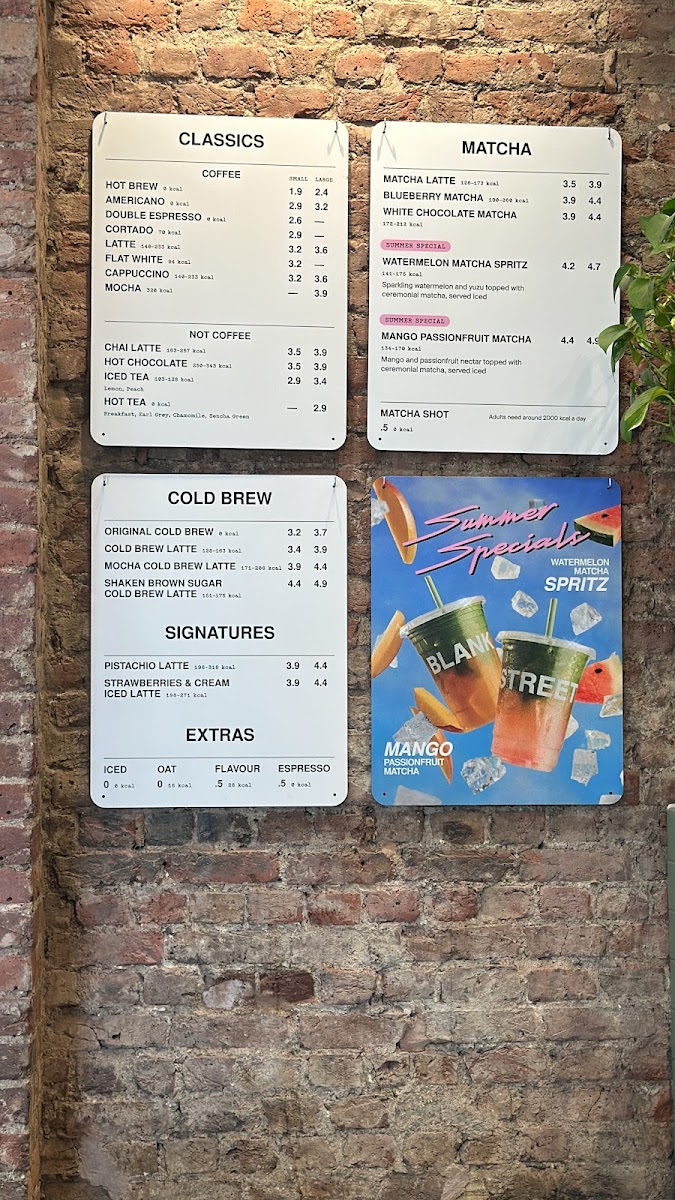 CLASSICS
COFFEE
SMALL LARGE
HOT BREW 0 kcal 1.9 2.4
AMERICANO 0 kcal 2.9 3.2
DOUBLE ESPRESSO 0 kcal 2.6 —
CORTADO 70 kcal 2.9 —
LATTE 140-233 kcal 3.2 3.6
FLAT WHITE 94 kcal 3.2 —
CAPPUCCINO 140-233 kcal 3.2 3.6
MOCHA 320 kcal — 3.9
NOT COFFEE
CHAI LATTE 183-257 kcal 3.5 3.9
HOT CHOCOLATE 250-343 kcal 3.5 3.9
ICED TEA 103-128 kcal 2.9 3.4
Lemon, Peach
HOT TEA 0 kcal — 2.9
Breakfast, Earl Grey, Chamomile, Sencha Green
MATCHA
MATCHA LATTE 126-173 kcal 3.5 3.9
BLUEBERRY MATCHA 190-260 kcal 3.9 4.4
WHITE CHOCOLATE MATCHA 3.9 4.4
172-212 kcal
SUMMER SPECIAL
WATERMELON MATCHA SPRITZ 4.2 4.7
141-175 kcal
Sparkling watermelon and yuzu topped with
ceremonial matcha, served iced
SUMMER SPECIAL
MANGO PASSIONFRUIT MATCHA 4.4 4.9
134-170 kcal
Mango and passionfruit nectar topped with
ceremonial matcha, served iced
MATCHA SHOT
.5 0 kcal
Adults need around 2000 kcal a day
COLD BREW
ORIGINAL COLD BREW 0 kcal 3.2 3.7
COLD BREW LATTE 128-163 kcal 3.4 3.9
MOCHA COLD BREW LATTE 171-208 kcal 3.9 4.4
SHAKEN BROWN SUGAR 4.4 4.9
COLD BREW LATTE 151-175 kcal
SIGNATURES
PISTACHIO LATTE 198-316 kcal 3.9 4.4
STRAWBERRIES & CREAM 3.9 4.4
ICED LATTE 198-271 kcal
EXTRAS
ICED OAT FLAVOUR ESPRESSO
0 0 kcal 0 18 kcal .5 28 kcal .5 0 kcal
Summer
Specials
WATERMELON
MATCHA
SPRITZ
BLANK
STREET
MANGO
PASSIONFRUIT
MATCHA